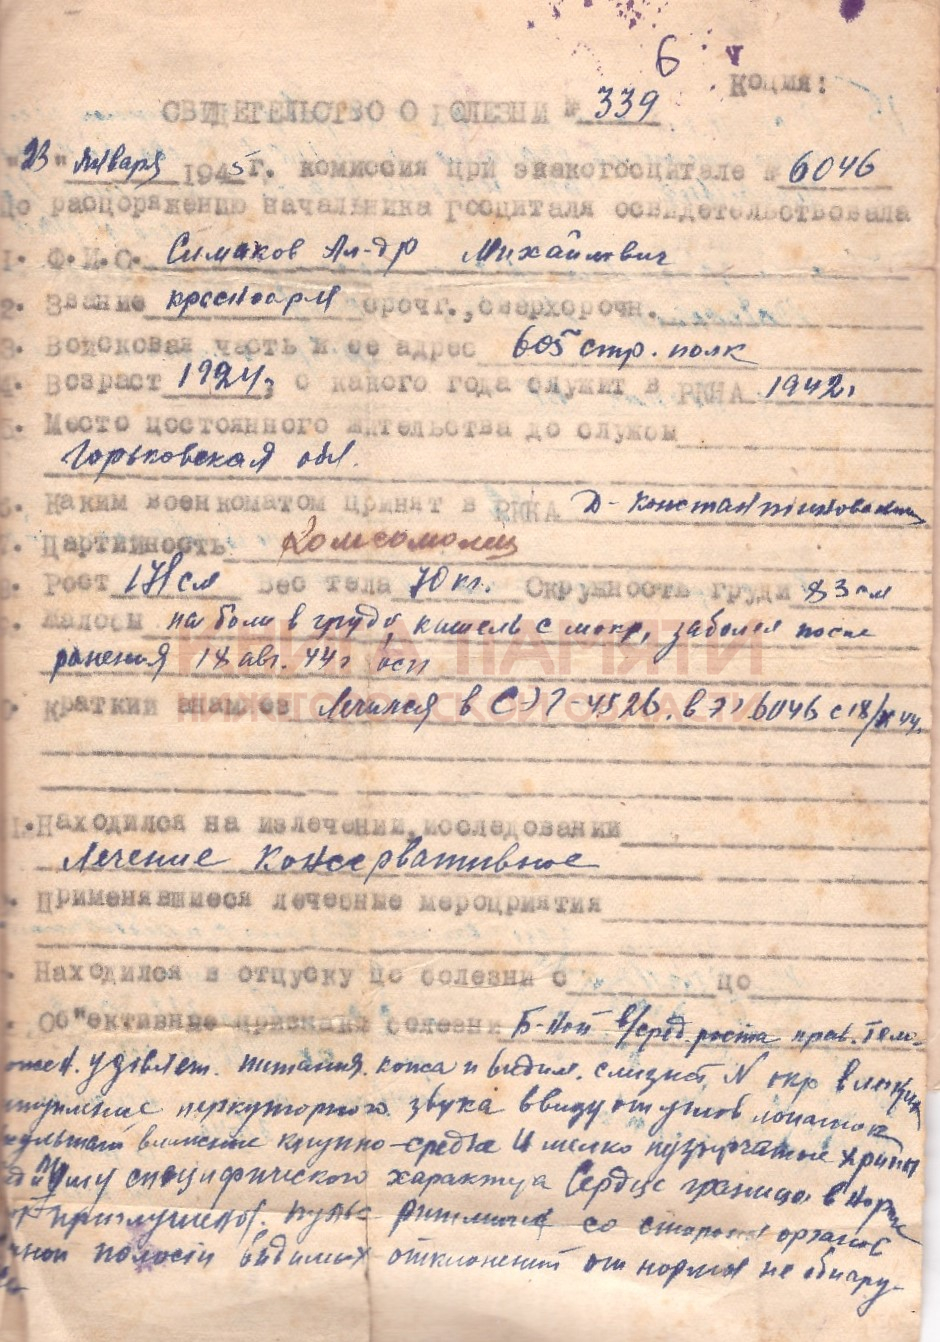 6 v
Копия:
СВИДЕТЕЛЬСТВО О БОЛЕЗНИ № 339
"23" января 1945г. комиссия при эвакогоспитале № 6046
По распоряжению начальника госпиталя освидетельствовала
1. Ф.И.О. Симаков Ал-др Михайлович
2. Звание красноарм срочг., сверхсрочн.
3. Войсковая часть и ее адрес 605 стр. полк
4. Возраст 1924, с какого года служит в РККА 1942г
5. Место постоянного жительства до службы
Горьковская обл.
6. Каким военкоматом принят в РККА Д-Константиновским
7. Партийность Комсомолец
8. Рост 171 см Вес тела 70 кг. Окружность груди 83 см
9. Жалобы на боли в груди, кашель с мокр, заболел после
ранения 18 авг. 44г
КНИГА ПАМЯТИ
НИЖЕГОРОДСКОЙ ОБЛАСТИ
Краткий анамнез Лечился в СЭГ-4526. в ЭГ 6046 с 18/X 44г.
1. Находился на излечении, исследовании
Лечение консервативное
Применявшиеся лечебные мероприятия
Находился в отпуску по болезни с по
Об"ективные признаки болезни Б-ной в/сред. роста прав. тело-
удовлет. питания. кожа и видим. слизист. N окр в легких
перкуторного звука в виду от углов лопаток
влажные крупно-средне и мелко пузырчатые хрипы
специфического характера Сердце границы в норме
приглушены. пульс ритмичн со стороны органов
полости видимых отклонений от нормы не обнару-